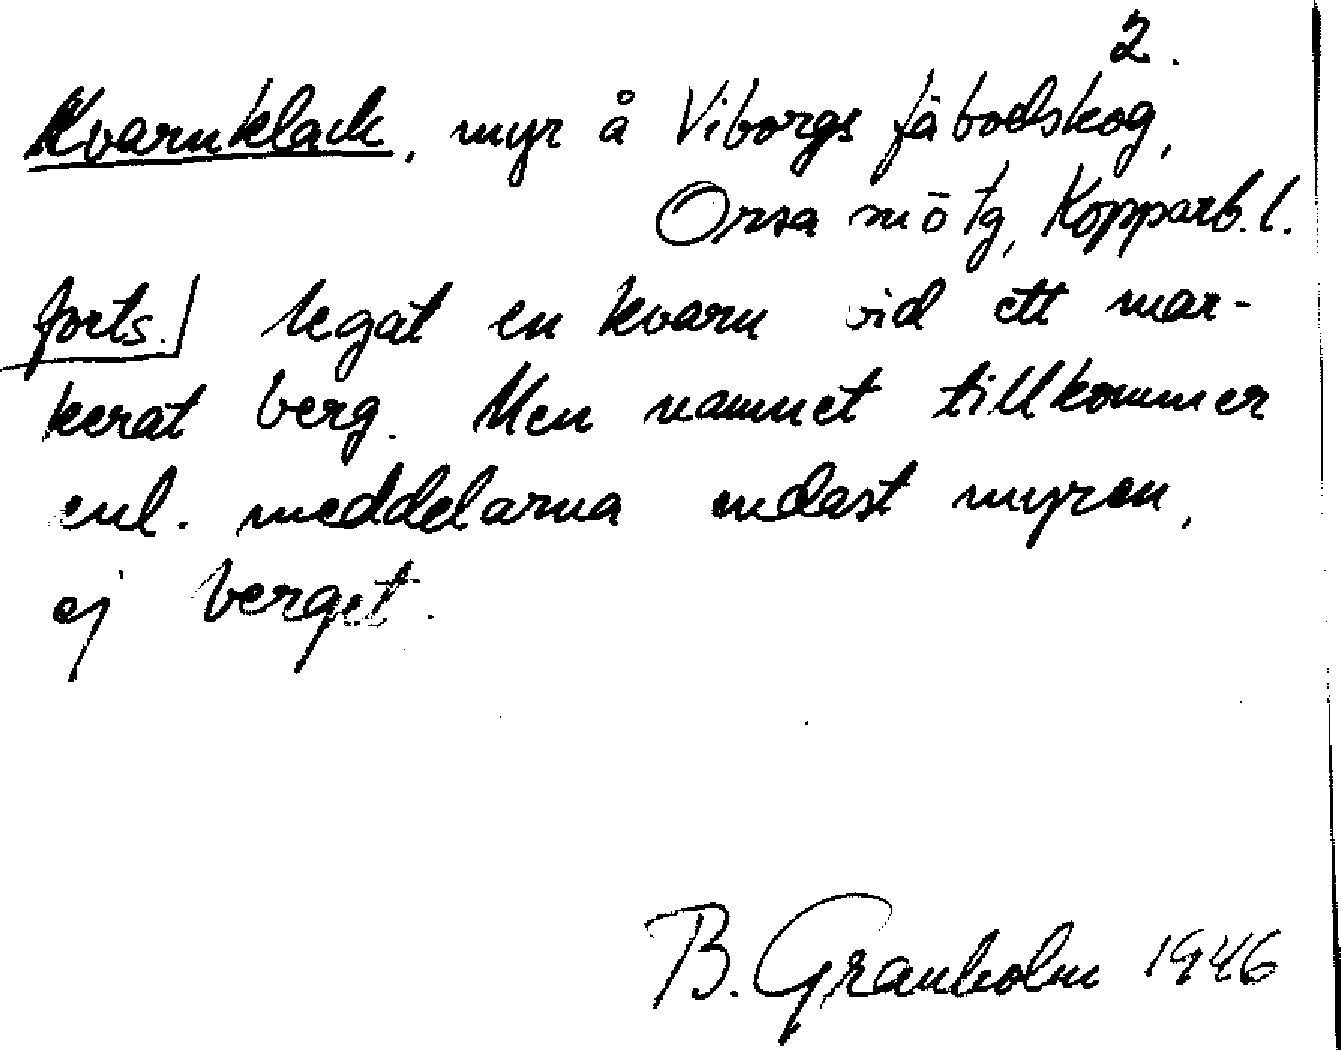 2.
Kvarnklack, myr å Viborgs fäbodskog,
Orsa sn ö tg, Kopparb. l.
forts. legat en kvarn vid ett mar-
kerat berg. Men namnet tillkommer
enl. meddelarna endast myren,
ej berget.
B. Granholm 1946